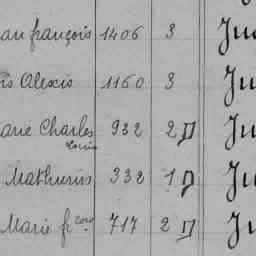 an françois 1406 3 Ju
is Alexis 1160 3 Ju
arie Charles 932 2 D Ju
Louis
Mathurin 332 1 D Ju
Marie fr çois 717 2 D Ju